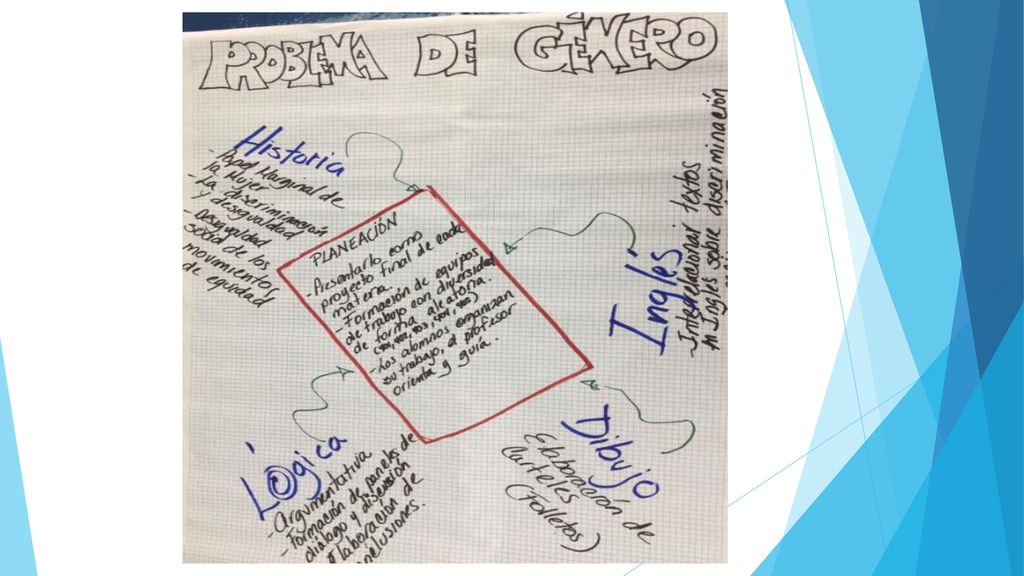 PROBLEMA DE GÉNERO
Historia
- Papel Marginal de
la Mujer
- La discriminación
y desigualdad
- Desigualdad
social de los
movimientos
de equidad
PLANEACIÓN
- Presentarlo como
proyecto final de cada
materia.
- Formación de equipos
de trabajo con diversidad
de forma aleatoria.
- Los alumnos organizan
su trabajo, el profesor
orienta y guía.
Inglés
- Interrelacionar textos
en Inglés sobre discriminación
Lógica
- argumentativa
- Formación de paneles de
diálogo y discusión
elaboración de
conclusiones.
Dibujo
Elaboración de
Carteles
(Folletos)